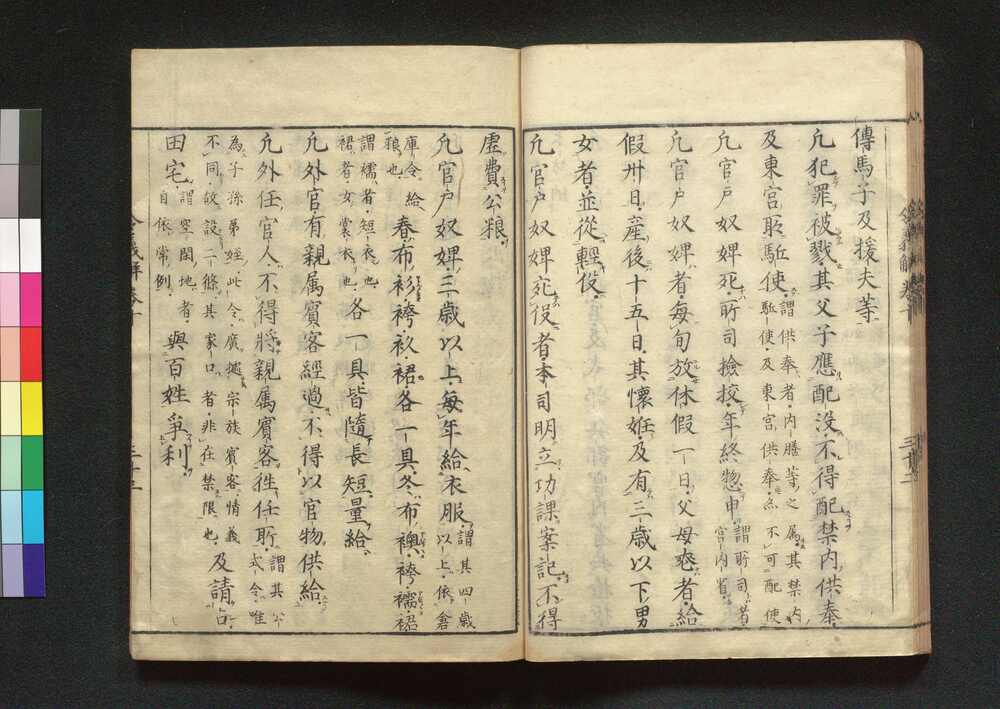 傳馬子及援夫等
凢犯罪被戮其父子應配没不得配禁内供奉
及東宮駈使謂供奉者内膳等之属其禁内駈使及東宮供奉亦不可配使
凢官戸奴婢死所司撿挍年終惣申謂所司者宮内省
凢官戸奴婢者毎旬放休假一日父母喪者給
假卅日産後十五日其懐妊及有三歳以下男
女者並從輕役
凢官戸奴婢宛役者本司明立功課案記不得
虚費公粮
凢官戸奴婢三歳以上毎年給衣服謂其四歳以上依倉
庫令給粮也春布衫袴衫裙各一具冬布襖袴襦裙
謂襦者短衣也裙者女裳衣也各一具皆隨長短量給
凢外官有親属賓客經過不得以官物供給
凢外任官人不得將親属賓客徃任所謂其公式令唯
為子孫弟姪此令廣縄宗族賓客情義不同故設二條其家口者非在禁限也及請占
田宅謂空閑地者自依常例與百姓争利
令義解巻十
三十三